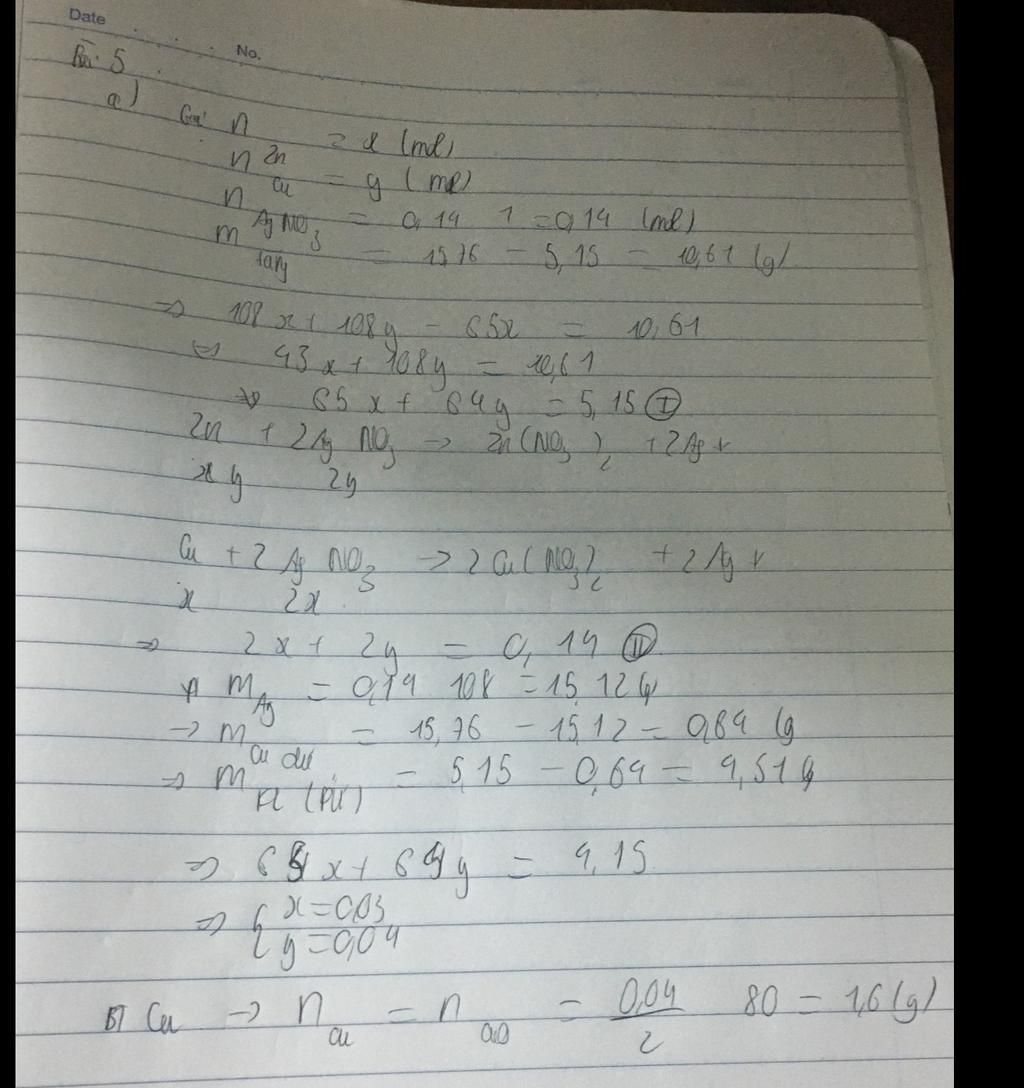 Date
No.
Bài 5
a) Gọi n Zn = x (mol)
n Cu = y (mol)
n AgNO3 = 0,14 1 = 0,14 (mol)
m tăng = 15,76 - 5,15 = 10,61 (g)
=> 108x + 108y - 65x = 10,61
<=> 43x + 108y = 10,61
65x + 64y = 5,15 (I)
Zn + 2AgNO3 -> Zn(NO3)2 + 2Ag↓
x y 2y
Cu + 2AgNO3 -> 2Cu(NO3)2 + 2Ag↓
x 2x
=> 2x + 2y = 0,14 (II)
m Ag = 0,14 108 = 15,12 g
-> m Cu dư = 15,76 - 15,12 = 0,64 (g
=> m Kl (PƯ) = 5,15 - 0,64 = 4,51 g
=> 65x + 64y = 4,15
=> { x = 0,03
y = 0,04
BT Cu -> n Cu = n CuO = 0,04/2 80 = 1,6 (g)